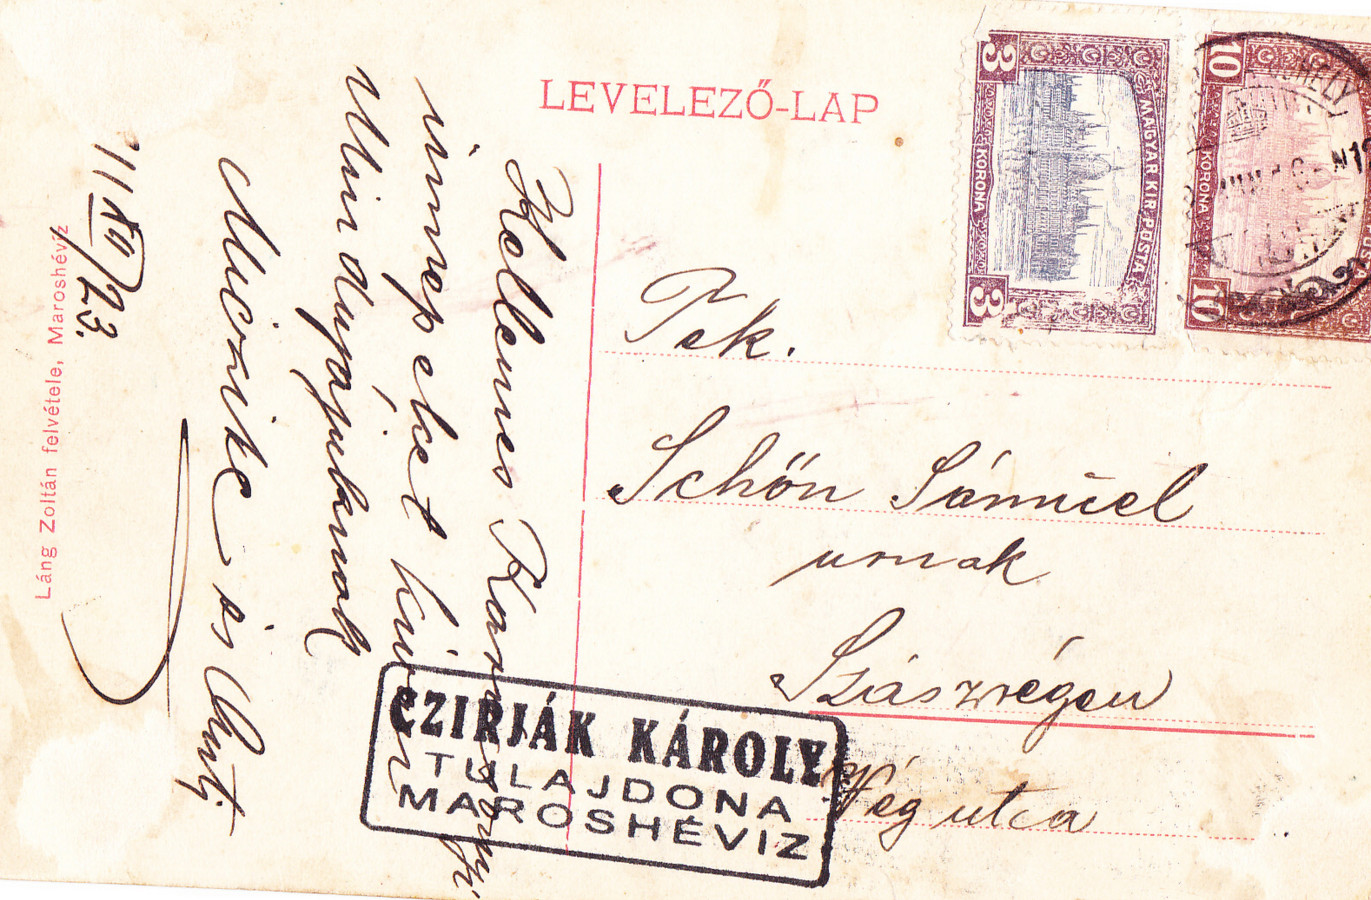 LEVELEZŐ-LAP
3 MAGYAR KIR. POSTA
KORONA
3
10
KORONA
10
Tek.
Schön Sámuel
urnak
Szászrégen
Vég utca
Kellemes Karácsonyi
ünnepeket kiván
Mindnyájuknak
Muczike és
11/XII/23.
Láng Zoltán felvétele, Maroshéviz
CZIRJÁK KÁROLY
TULAJDONA
MAROSHÉVIZ